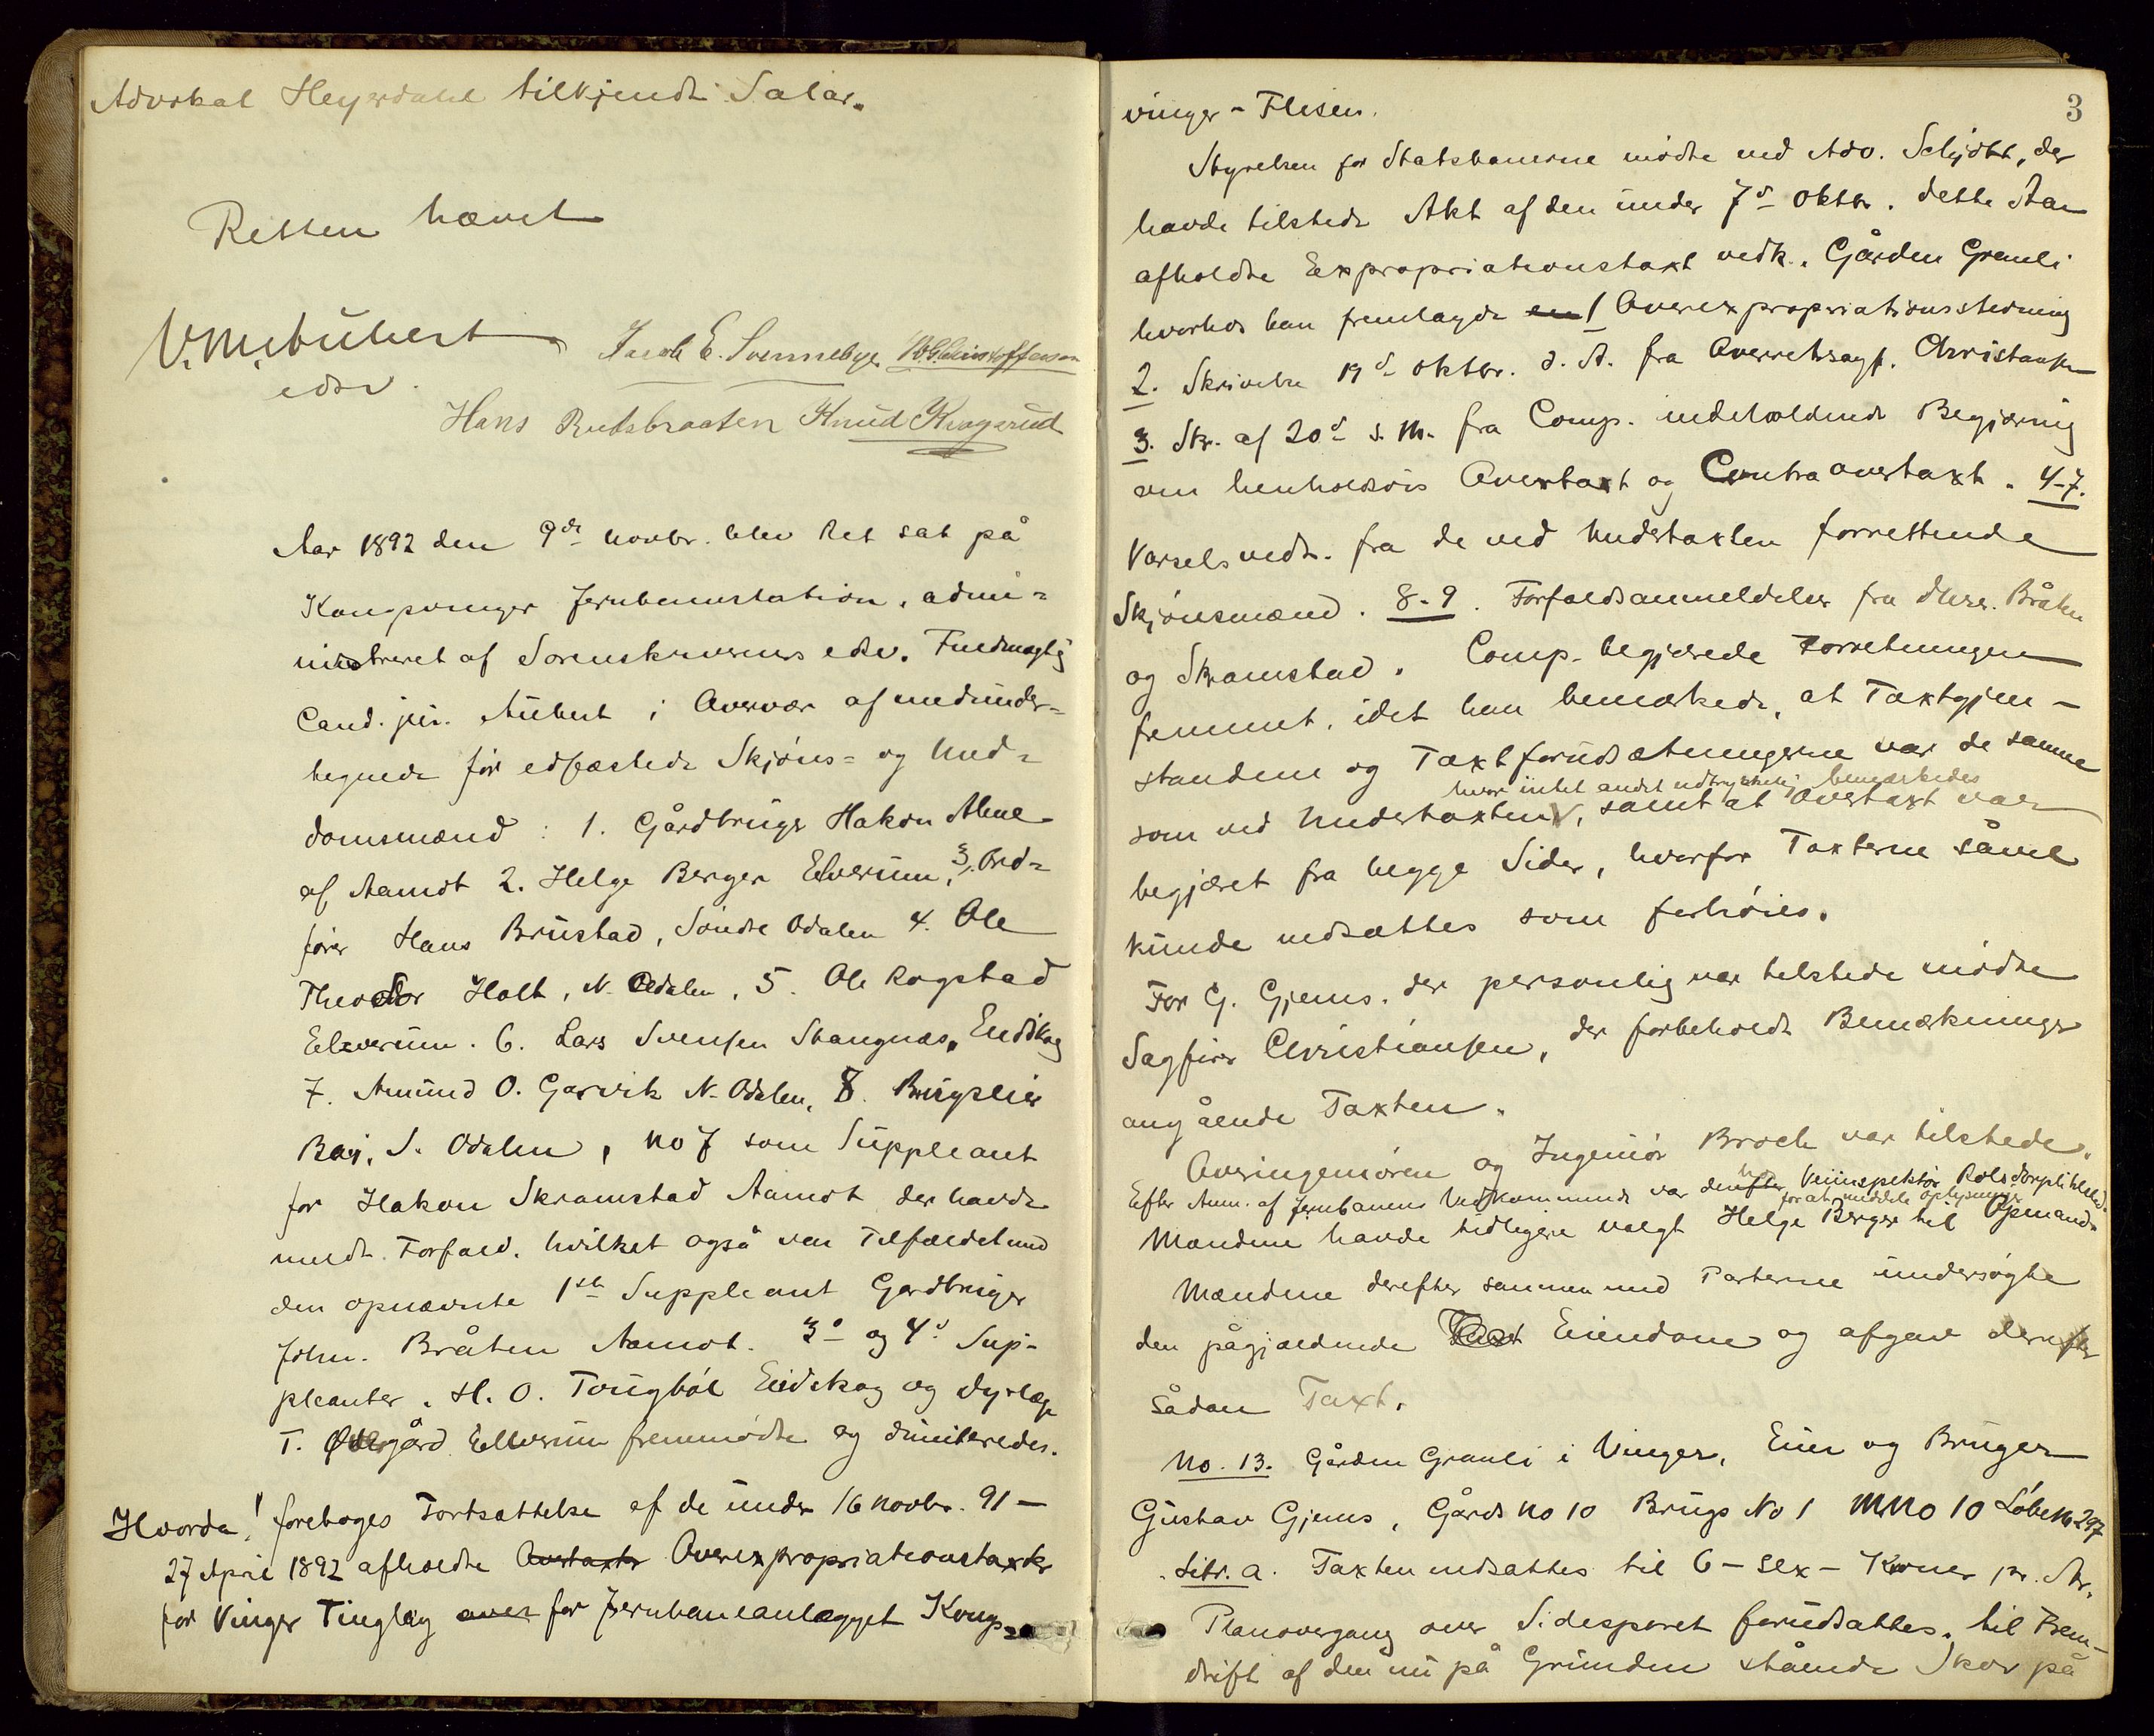 Advokat Heyerdahl tilkjendt Salær.
Retten hævet
V. M. Aubert
edsv.
Jacob E. Svennebye
Hans Rutsbraaten Knud Krogsrud
Aar 1892 den 9de novbr. blev Ret sat på
Kongsvinger Jernbanestation, admi-
nistreret af Sorenskriverens edsv. Fuldmægtig
Cand. jur. Aubert i Overvær af medunder-
tegnede før edfæstede Skjøns- og Med-
domsmænd: 1. Gårdbruger Hakon Alme
af Aamot 2. Helge Berger Elverum, 3. Ord-
fører Hans Brustad, Søndre Odalen 4. Ole
Theodor Holt, N. Odalen, 5. Ole Rogstad
Elverum. 6. Lars Svensen Stangnæs, Eidskog
7. Amund O. Garvik N. Odalen, 8.
S. Odalen, no 7 som Suppleant
for Hakon Skramstad Aamot der havde
meldt Forfald, hvilket også var Tilfældet med
den opnævnte 1ste Suppleant Gardbruger
John. Bråten Aamot. 3d og 4d Sup-
pleanter, H. O. Tougbøl Eidskog og Dyrlæge
T. Øvergård Elverum fremmødte og dimiteredes.
Hvorda! foretoges Fortsættelse af de under 16 novbr. 91 -
27 April 1892 afholdte Overtaxter Overexpropriationstaxter
for Vinger Tinglag over for Jernbaneanlægget Kongs-
3
vinger - Flisen.
Styrelsen for Statsbanerne mødte ved Adv. Schjødt, der
havde tilstede Akt af den under 7d oktbr. dette Aar
afholdte Expropriationstaxt vedk. Gården Granli
hvorhos han fremlagde en 1 Overexpropriationsstevning
2. Skrivelse 19d oktbr. d. A. fra Overretssagf. Christiansen
3. Skr. af 20d s. M. fra Comp. indeholdende Begjæring
om henholdsvis Overtaxt og Contraovertaxt. 4-7.
Varselsvedt. fra de ved Undertaxten forrettende
Skjønsmænd. 8-9. Forfaldsanmeldelser fra Dhrr. Bråten
og Skramstad. Comp. begjærede Forretningen
fremmet, idet han bemærkede, at Taxtgjen-
standene og Taxtforudsætningerne var de samme
hvor intet andet udtrykkelig bemærkedes
som ved Undertaxten V, samt at Overtaxt var
begjæret fra begge Sider, hvorfor Taxterne såvel
kunde nedsættes som forhøies.
For G. Gjems, der personlig var tilstede mødte
Sagfører Christiansen, der forbeholdt Bemærkninger
angående Taxten.
Overingeniøren og Ingeniør Broch var tilstede.
Efter Anm. af Jernbanens Vedkommende var derhos Veiinspektør Rolsdorph tilsted
for at meddele oplysninger
Mændene havde tidligere valgt Helge Berger til Opmand.
Mændene derefter sammen med Parterne undersøgte
den pågjældende Taxt Eiendom og afgav derefter
sådan Taxt.
No. 13. Gården Granli i Vinger, Eier og Bruger
Gustav Gjems, Gårds no 10 Brugs No 1 MNo 10 Løbe No 297
Litr. a. Taxten nedsattes til 6 - sex - Kroner pr. Ar.
Planovergang over Sidesporet forudsattes. til Frem-
drift af den nu på Grunden stående Skov på